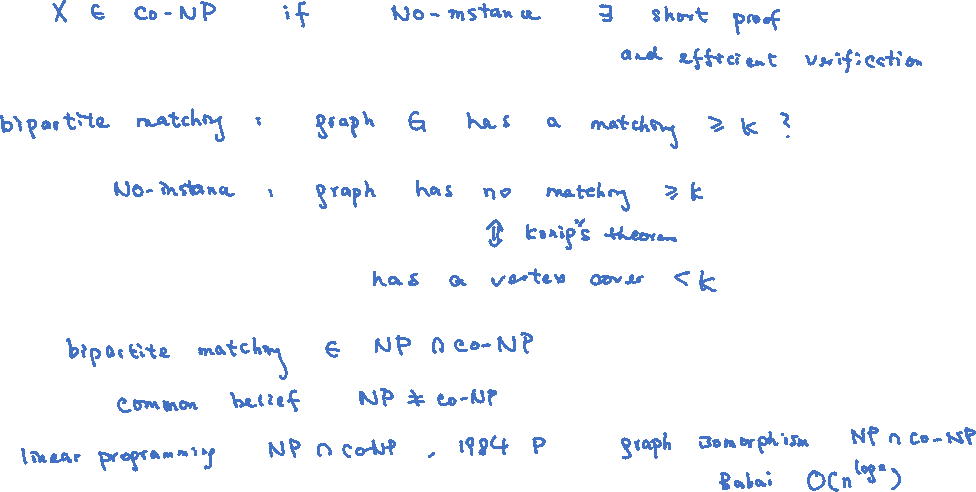 X ∈ co-NP if No-instance ∃ short proof
and efficient verification
bipartite matching : graph G has a matching ≥ k ?
No-instance : graph has no matching ≥ k
⇕ Konig's theorem
has a vertex cover < k
bipartite matching ∈ NP ∩ co-NP
common belief NP ≠ co-NP
linear programming NP ∩ coNP , 1984 P graph isomorphism NP ∩ co-NP
Babai O(n^{log n})